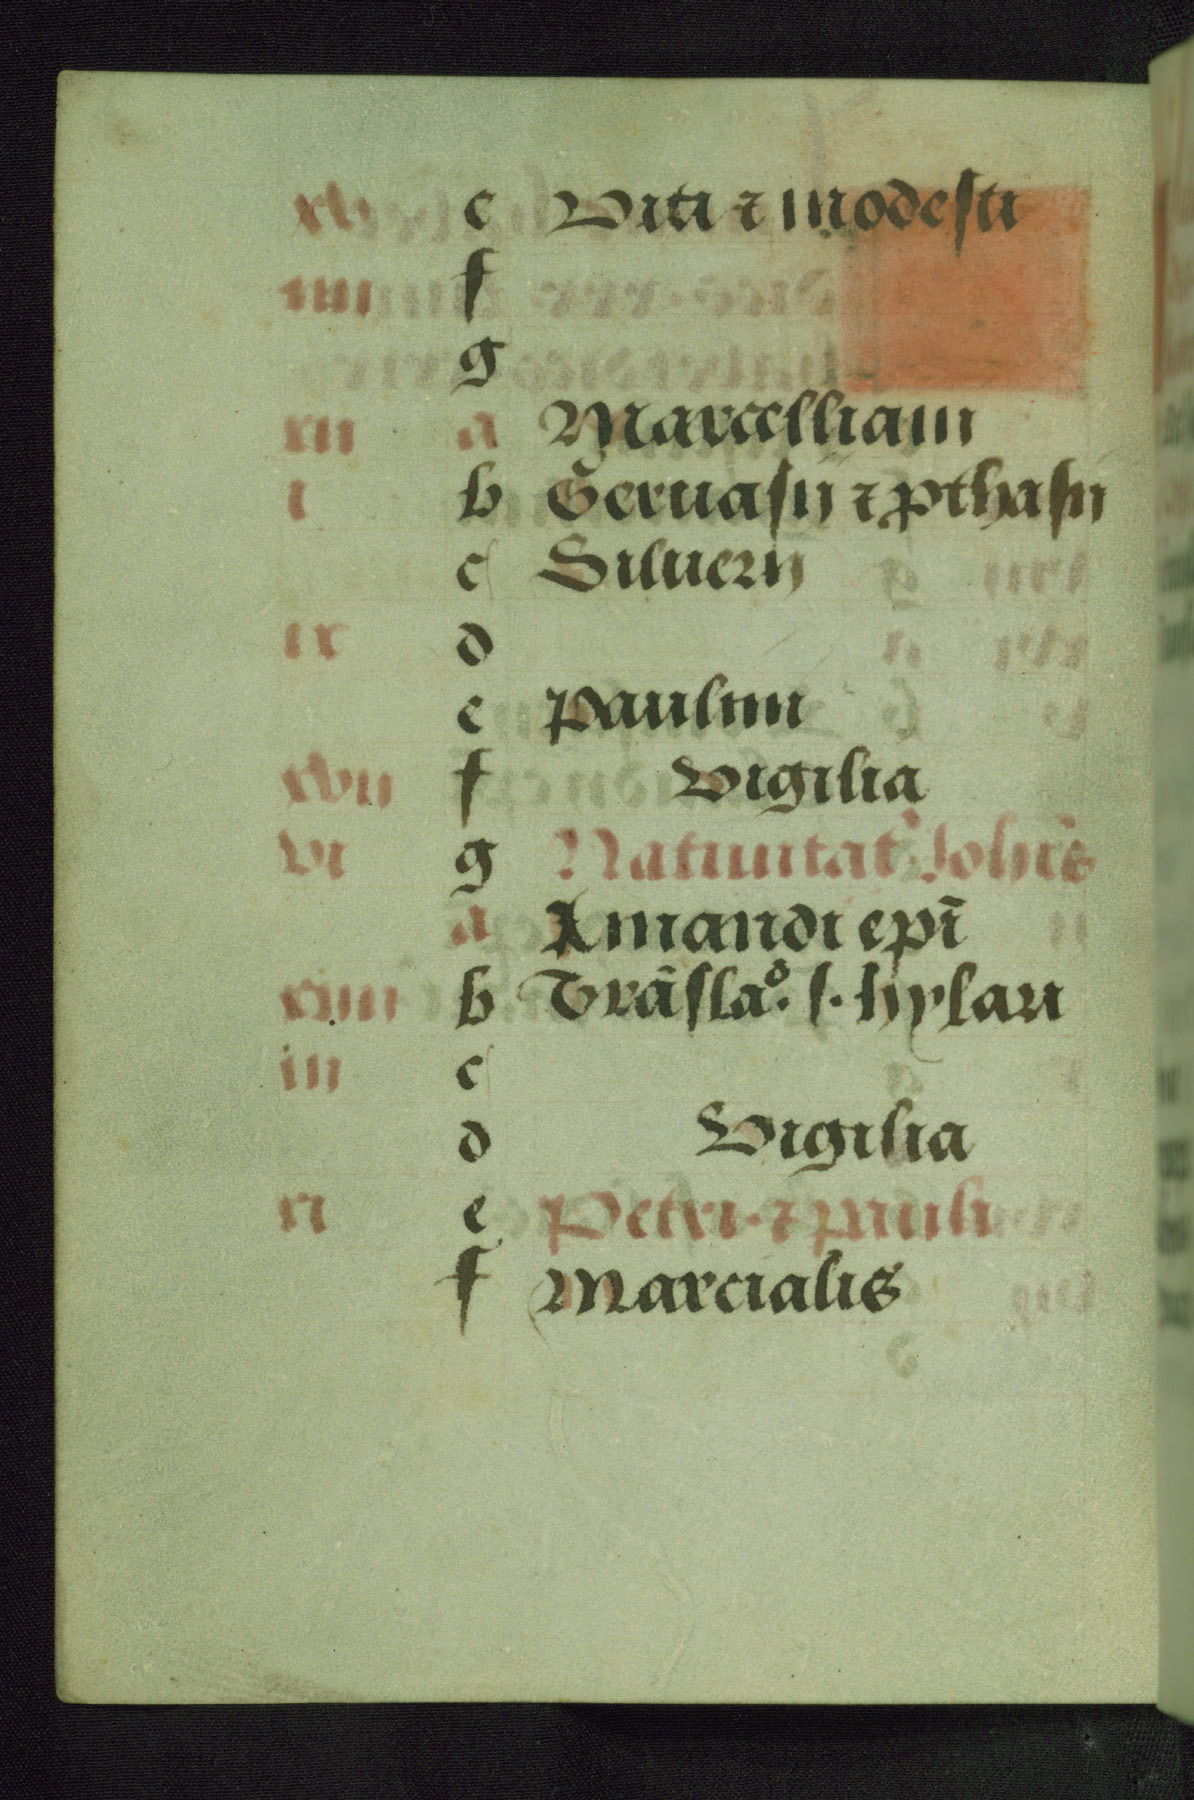 xv e Viti ⁊ modesti
iiii f
g
xii a Marcelliani
i b Geruasii ⁊ ꝓthasii
c Siluerii
ix d
e Paulini
xvii f Vigilia
vi g Natiuitat Johīs
a Amandi epī
xiiii b Trāslaͦ. s. hylarii
iii c
d Vigilia
xi e Petri. ⁊ pauli
f Marcialis